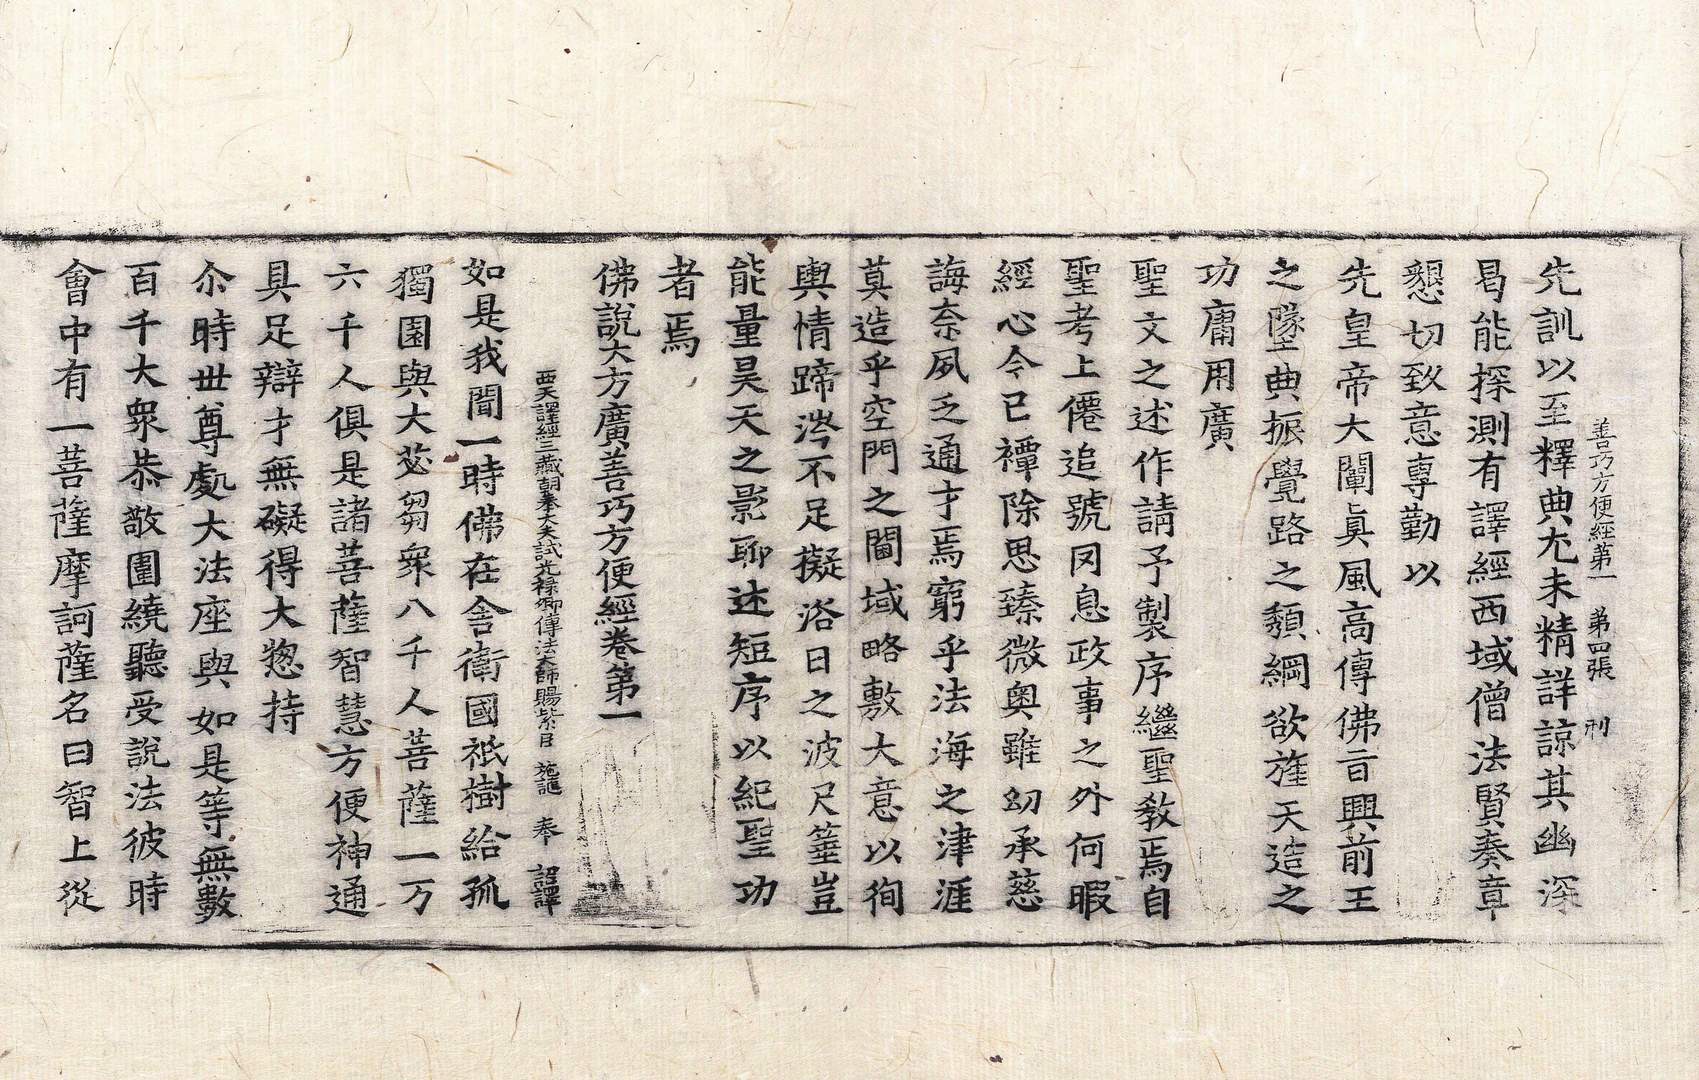 善巧方便經第一 第四張 刊
先訓以至釋典尤未精詳諒其幽深
曷能探測有譯經西域僧法賢奏章
懇切致意專勤以
先皇帝大闡眞風高傳佛旨興前王
之墜典振覺路之頹綱欲旌天造之
功庸用廣
聖文之述作請予製序繼聖敎焉自
聖考上僊追號罔息政事之外何暇
經心今已禫除思臻微奥雖幼承慈
誨柰夙乏通才焉窮乎法海之津涯
莫造乎空門之閫域略敷大意以徇
輿情蹄涔不足擬浴日之波尺箠豈
能量昊天之影聊述短序以紀聖功
者焉
佛說大方廣善巧方便經卷第一
西天譯經三藏朝奉大夫試光祿卿傳法大師賜紫臣 施護 奉 詔譯
如是我聞一時佛在舍衛國祇樹給孤
獨園與大苾芻衆八千人菩薩一万
六千人俱是諸菩薩智慧方便神通
具足辯才無礙得大揔持
尒時世尊處大法座與如是等無數
百千大衆恭敬圍繞聽受說法彼時
會中有一菩薩摩訶薩名曰智上從